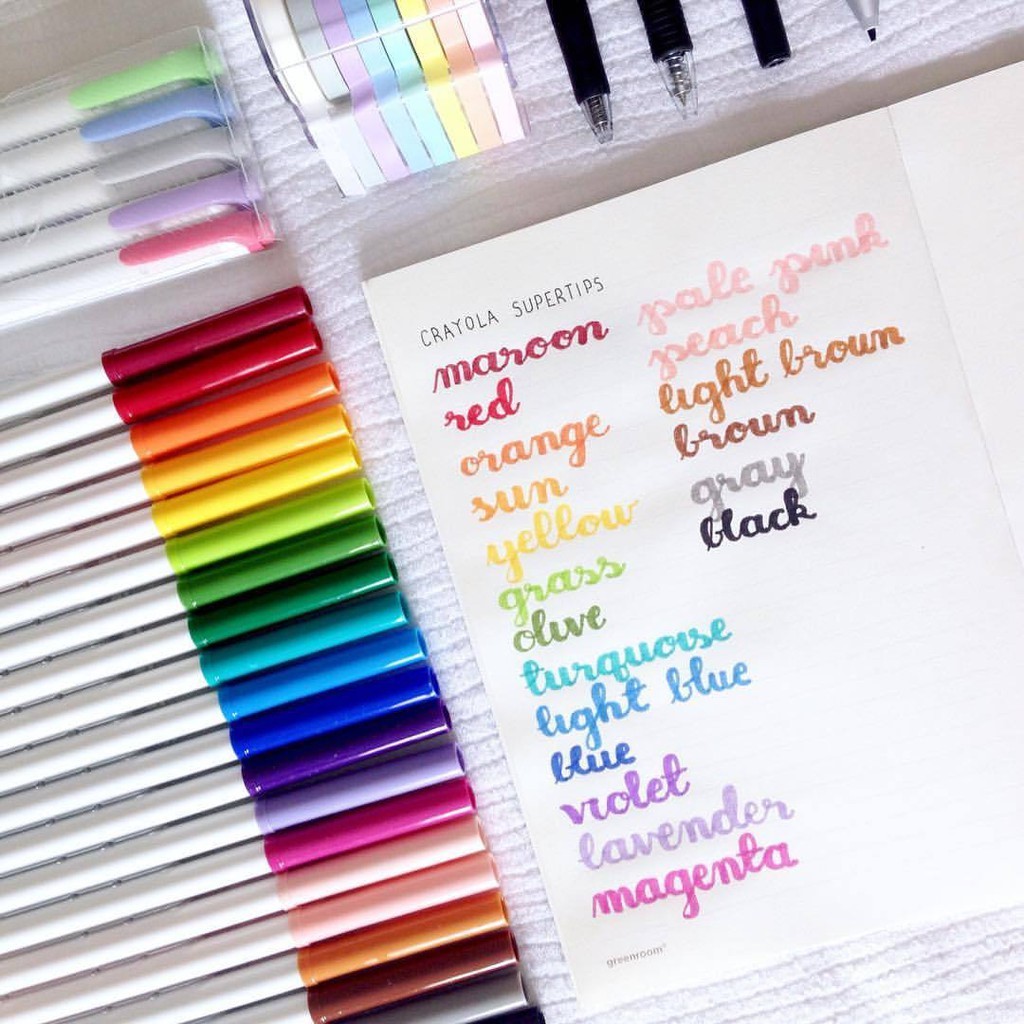 CRAYOLA SUPERTIPS
maroon
red
orange
sun
yellow
grass
olive
turquoise
light blue
blue
violet
lavender
magenta
pale pink
peach
light brown
brown
gray
black
greenroom®